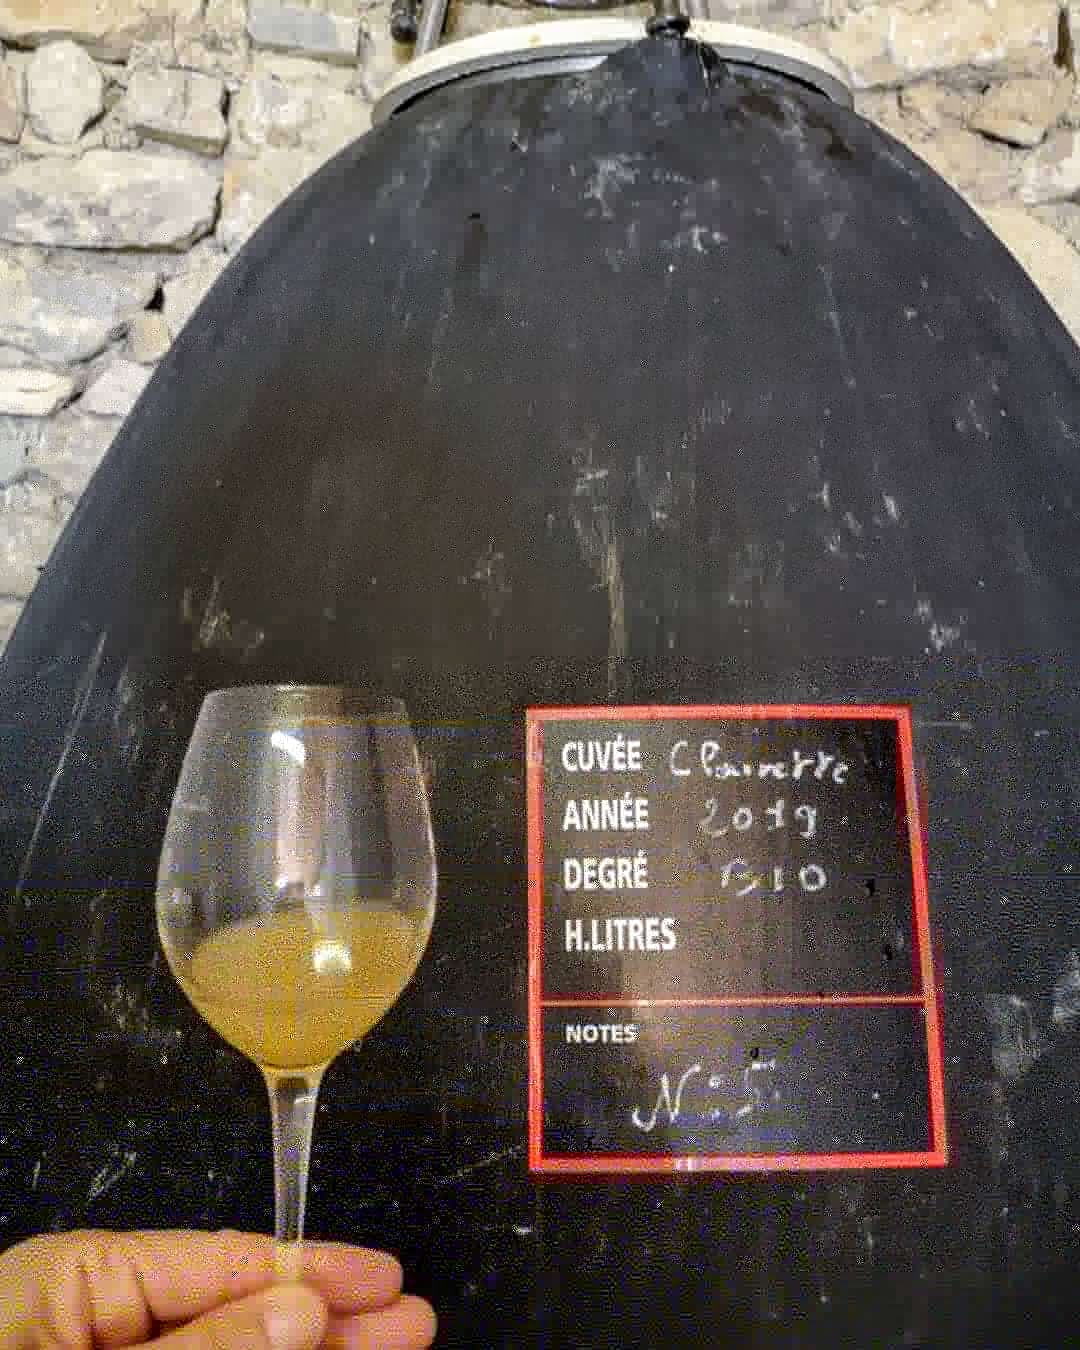 CUVÉE Clairette
ANNÉE 2019
DEGRÉ BIO
H.LITRES
NOTES
N:5